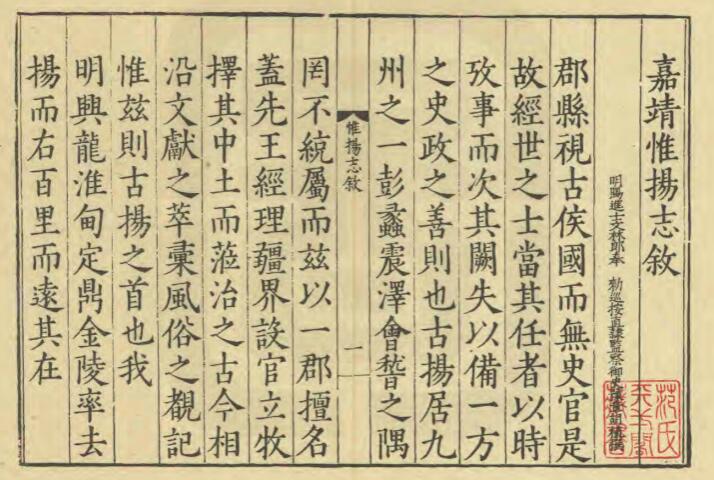 嘉靖惟揚志敘
明賜進士文林郎奉 勑巡按直隸監察御史
范氏
天一閣
郡縣視古侯國而無史官是
故經世之士當其任者以時
攷事而次其闕失以備一方
之史政之善則也古揚居九
州之一彭蠡震澤會稽之隅
惟揚志敘
一
罔不統屬而茲以一郡擅名
蓋先王經理疆界設官立牧
擇其中土而蒞治之古今相
沿文獻之萃稟風俗之覩記
惟茲則古揚之首也我
明興龍淮甸定鼎金陵率去
揚而右百里而遠其在